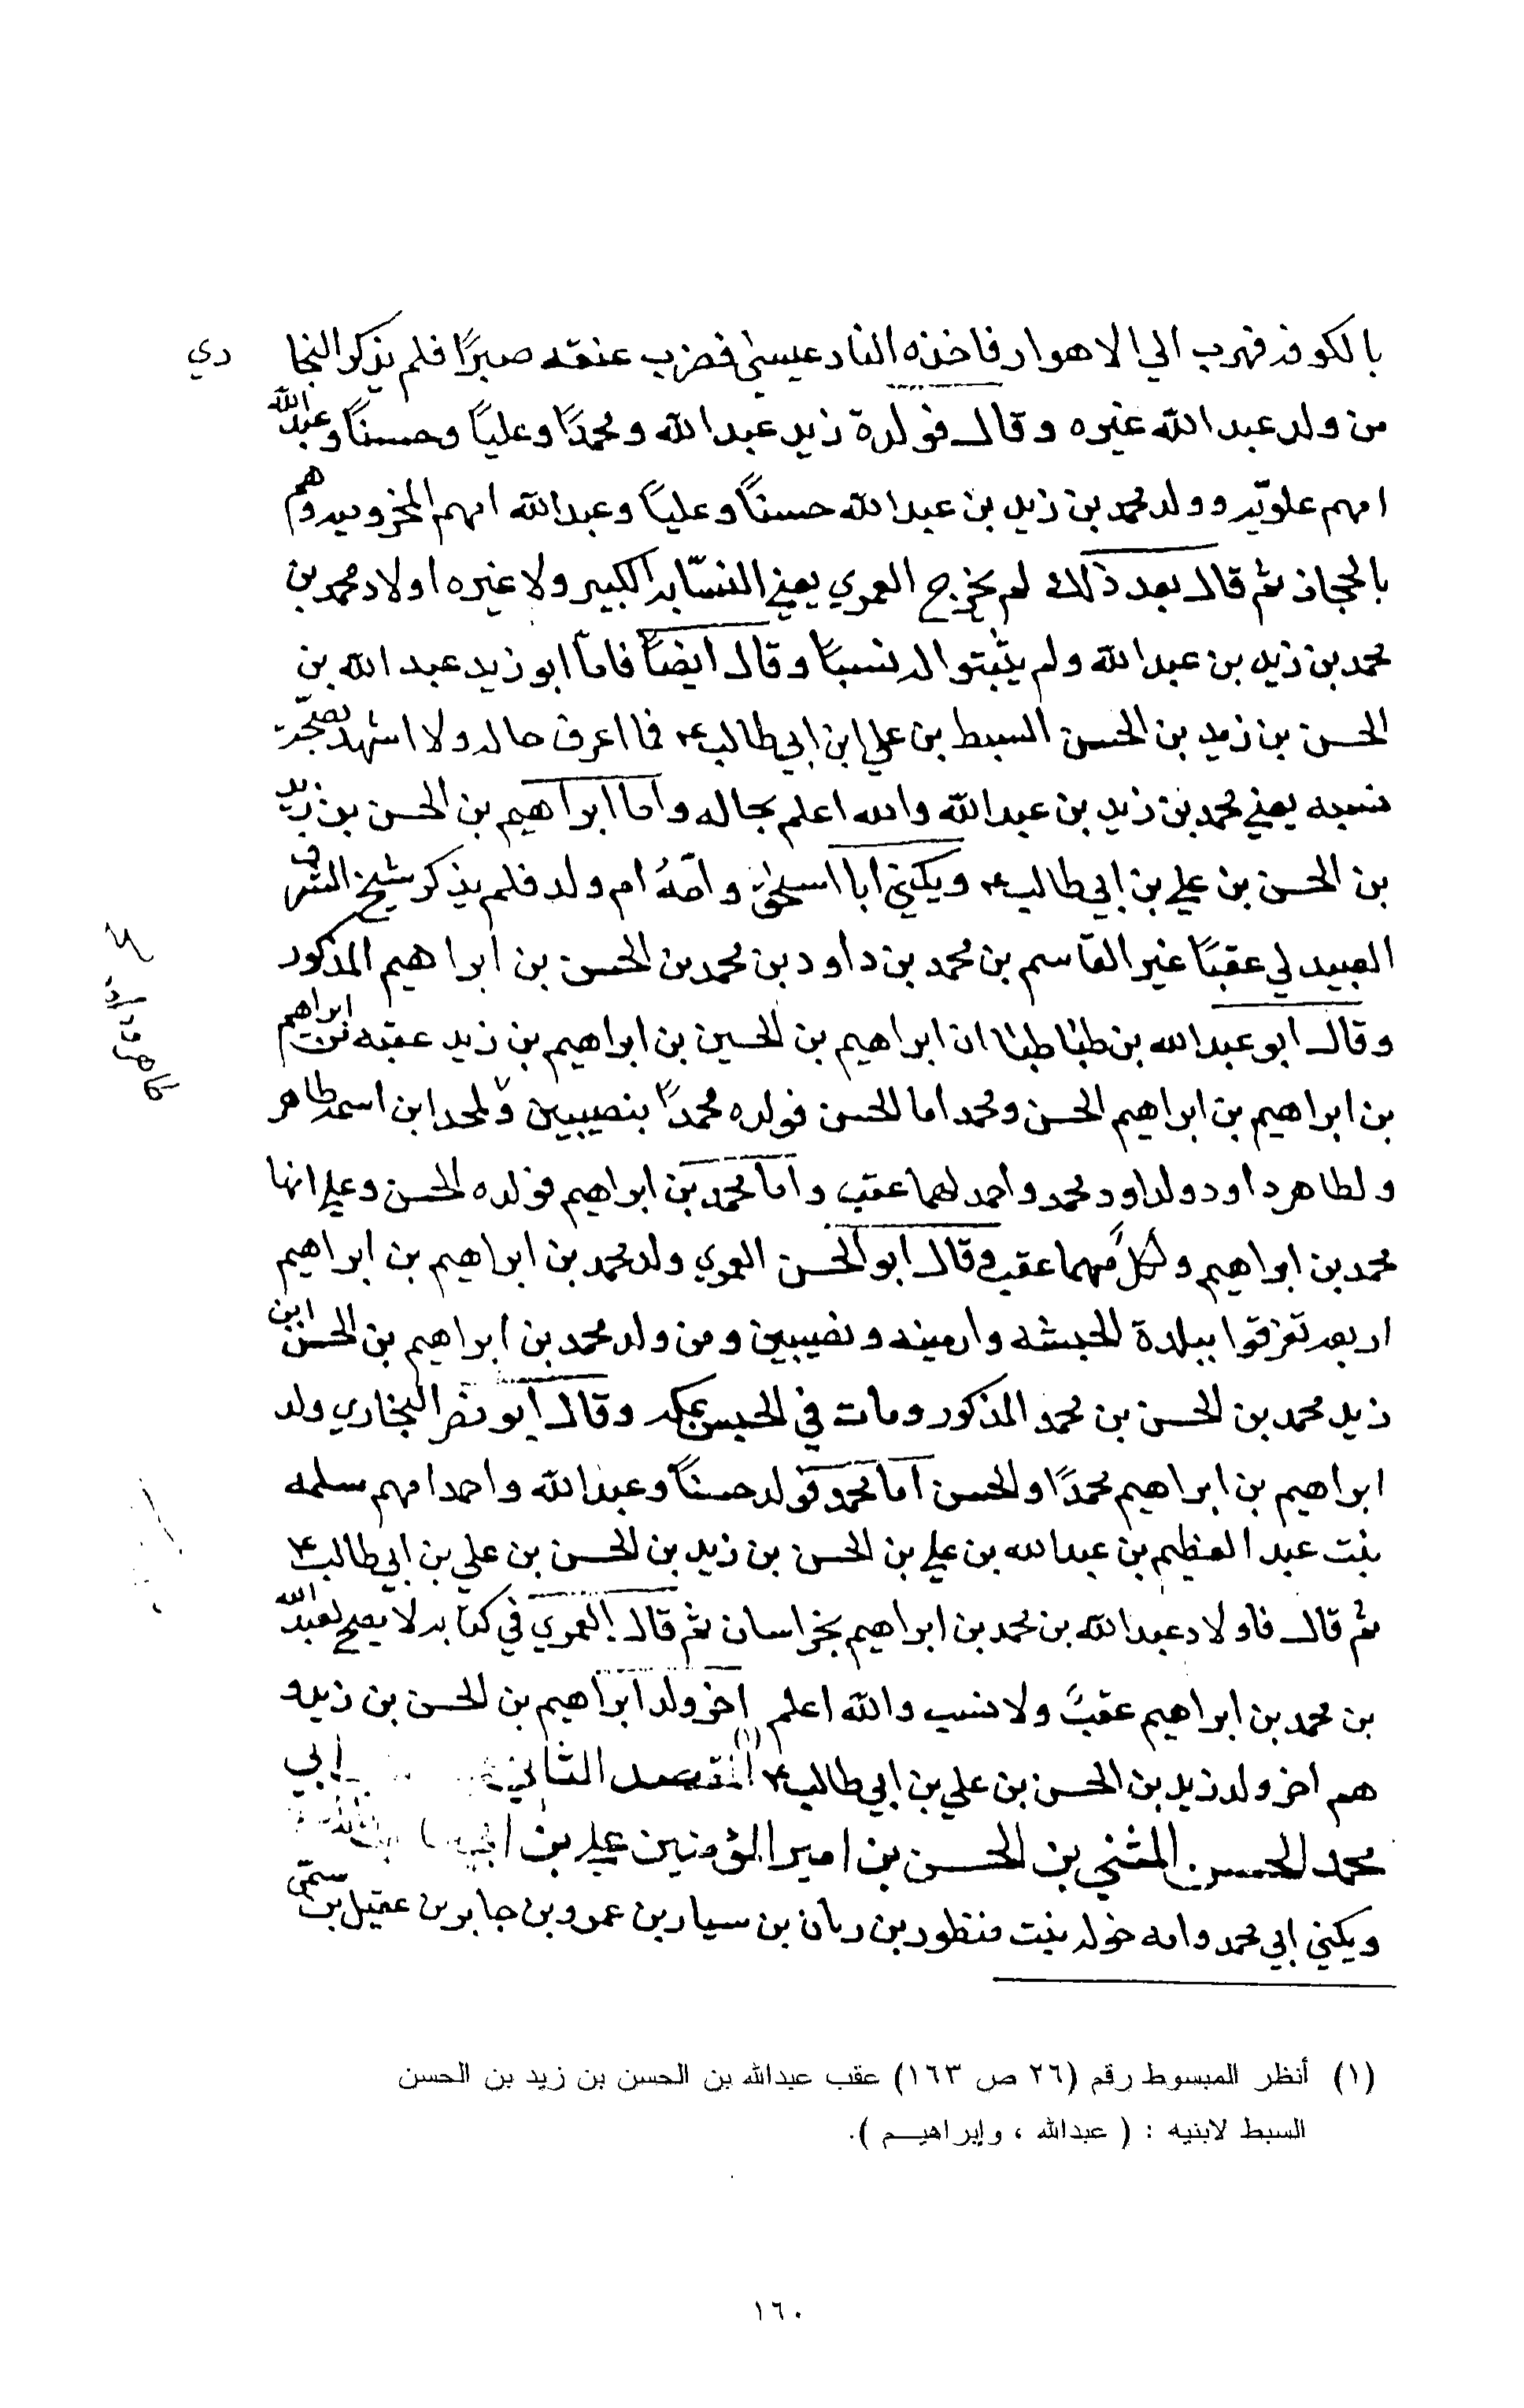 بالكوفه فهرب الي الاهواز فاخذه النادعيسى فضرب عنقه صبرًا فلم يذكر النجا دي
من ولد عبد الله غيره وقال فولدة زيد عبد الله ومحمدًا وعليًا وحسنًا وعبد الله
امهم علويّه وولد محمد بن زيد بن عبد الله حسنًا وعليًا وعبد الله امهم المخزوميه وهم
بالحجاز ثم قال بعد ذلك لم يخرج العمري يعني النسّابه الكبير ولا غيره اولاد محمد بن
محمد بن زيد بن عبد الله ولم يثبتوا له نسبًا وقال ايضًا فامّا ابو زيد عبد الله بن
الحسن بن زيد بن الحسن السبط بن علي ابن ابي طالب ع فما اعرف حاله ولا اشهد بصحّة
نسبه يعني محمد بن زيد بن عبد الله والله اعلم بحاله واما ابراهيم بن الحسن بن زيد
بن الحسن بن علي بن ابي طالب ع ويكنى ابا اسحق وامّهُ ام ولد فلم يذكر شيخ الشرف
العبيدلي عقبًا غير القاسم بن محمد بن داود بن محمد بن الحسن بن ابراهيم المذكور
وقال ابو عبد الله بن طباطبا ان ابراهيم بن الحسين بن ابراهيم بن زيد عقبه من ابراهيم
بن ابراهيم بن ابراهيم الحسن ومحمد اما الحسن فولده محمدًا بنصيبين ولمحمد ابن اسمه طاهر
ولطاهر داود ولداود محمد واحمد لهما عقب واما محمد بن ابراهيم فولده الحسن وعلي انها
محمد بن ابراهيم ولكل منهما عقب وقال ابو الحسن العمري ولد محمد بن ابراهيم بن ابراهيم
اربعه تفرقوا ببلدة الحبشه وارمينه ونصيبين ومن ولد محمد بن ابراهيم بن الحسن ابن
زيد محمد بن الحسن بن محمد المذكور ومات في الحبس بمكه وقال ابو نصر البخاري ولد
ابراهيم بن ابراهيم محمدًا والحسن اما محمد فولد حسنًا وعبد الله واحمد امهم سلمه
بنت عبد العظيم بن عبد الله بن علي بن الحسن بن زيد بن الحسن بن علي بن ابي طالب ع
ثم قال فاولاد عبد الله بن محمد بن ابراهيم بخراسان ثم قال العمري في كتابه لا يصح لعبد الله
بن محمد بن ابراهيم عقبً ولا نسب والله اعلم اخر ولد ابراهيم بن الحسن بن زيد و
هم اخر ولد زيد بن الحسن بن علي بن ابي طالب ع (١) الثاني ابي
محمد الحسن المثني بن الحسن بن امير المؤمنين علي بن
ويكنى ابي محمد وامه خوله بنت منظور بن ربان بن سيار بن عمرو بن جابر بن عقيل بن سمّى
(١) أنظر المبسوط رقم (٢٦ ص ١٦٣) عقب عبدالله بن الحسن بن زيد بن الحسن
السبط لابنيه : ( عبدالله ، وإبراهيـم ).
١٦٠